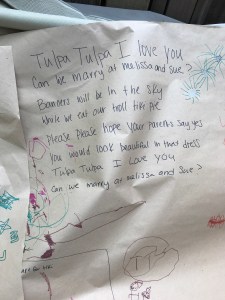 Tulpa Tulpa I love you
Can we marry at melissa and sue?
Banners will be in the sky
while we eat our troll tike pie
Please Please hope your parents say yes
you would look beautiful in that dress
Tulpa Tulpa I Love you
Can we marry at melissa and sue?